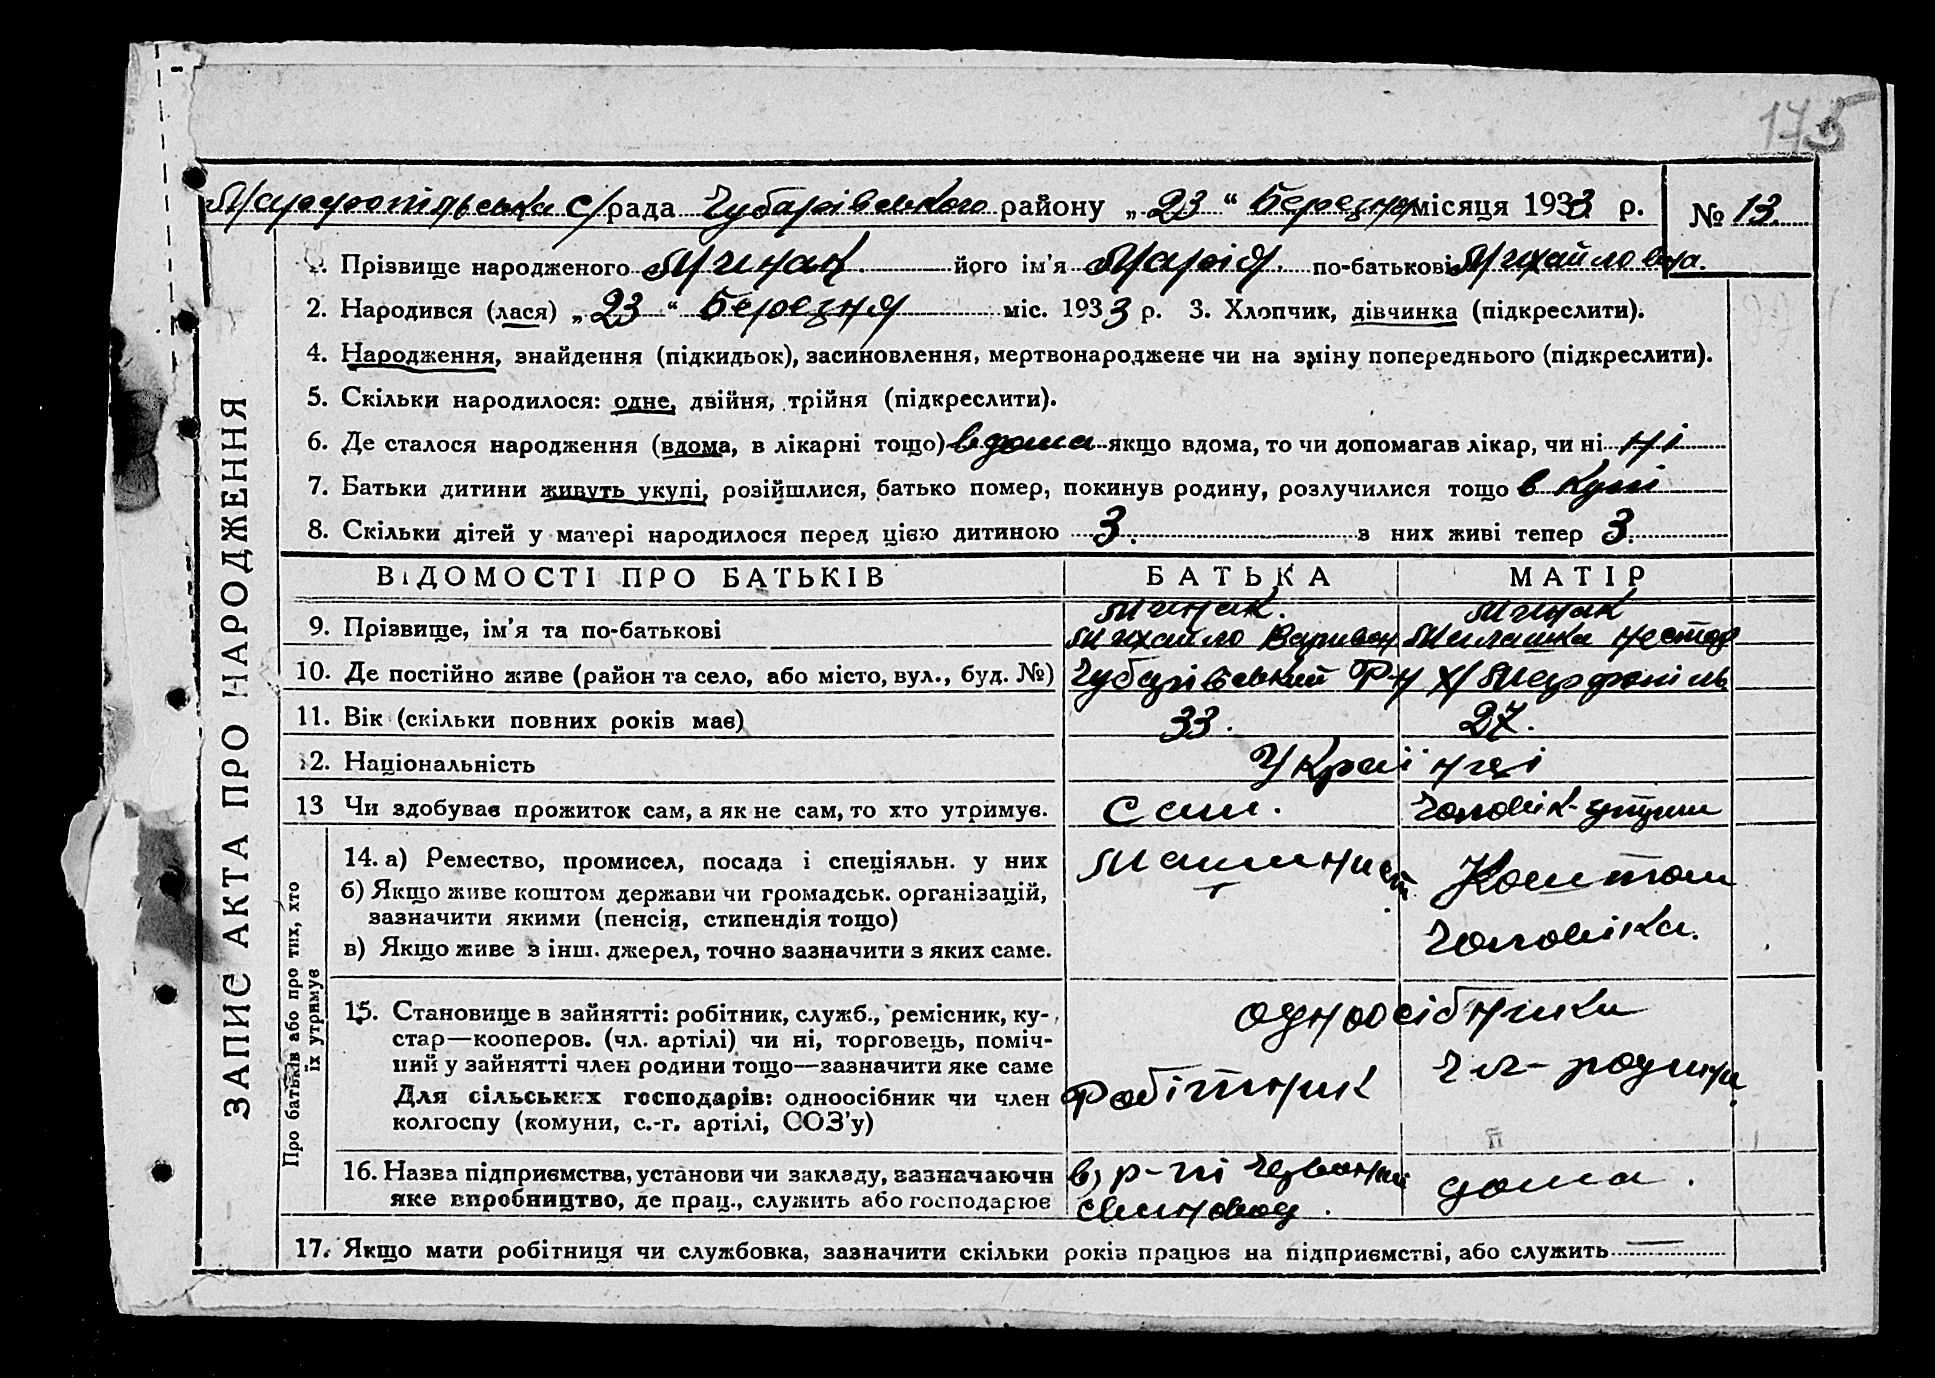 175
Марфопільська с/рада Чубарівського району „23“ Березня місяця 1933 р. № 13.
1. Прізвище народженого Минак його ім'я Марія по-батькові Михайловна.
2. Народився (лася) „23“ Березня міс. 1933 р. 3. Хлопчик, дівчинка (підкреслити).
4. Народження, знайдення (підкидьок), засиновлення, мертвонароджене чи на зміну попереднього (підкреслити).
5. Скільки народилося: одне, двійня, трійня (підкреслити).
6. Де сталося народження (вдома, в лікарні тощо) вдома якщо вдома, то чи допомагав лікар, чи ні ні
7. Батьки дитини живуть укупі, розійшлися, батько помер, покинув родину, розлучилися тощо в купі
8. Скільки дітей у матері народилося перед цією дитиною 3. в них живі тепер 3.
ЗАПИС АКТА ПРО НАРОДЖЕННЯ
ВІДОМОСТІ ПРО БАТЬКІВ БАТЬКА МАТІР
9. Прізвище, ім'я та по-батькові Минак. Михайло Минак Милашка Нестор
10. Де постійно живе (район та село, або місто, вул., буд. №) Чубарівський р-н х/Марфопіль
11. Вік (скільки повних років має) 33. 27.
12. Національність Українці
13 Чи здобуває прожиток сам, а як не сам, то хто утримує. Сам. Чоловік
Про батьків або про тих, хто їх утримує
14. а) Ремество, промисел, посада і спеціяльн. у них Машиніст Коштом
б) Якщо живе коштом держави чи громадськ. організацій,
зазначити якими (пенсія, стипендія тощо) чоловіка.
в) Якщо живе з інш. джерел, точно зазначити з яких саме.
15. Становище в зайнятті: робітник, служб., ремісник, ку- одноосібники
стар—кооперов. (чл. артілі) чи ні, торговець, поміч-
ний у зайнятті член родини тощо—зазначити яке саме чл-родини.
Для сільських господарів: одноосібник чи член Робітник
колгоспу (комуни, с.-г. артілі, СОЗ'у)
16. Назва підприємства, установи чи закладу, зазначаючи в р-пі Червоний дома.
яке виробництво, де прац., служить або господарює свиновод.
17. Якщо мати робітниця чи службовка, зазначити скільки років працює на підприємстві, або служить —